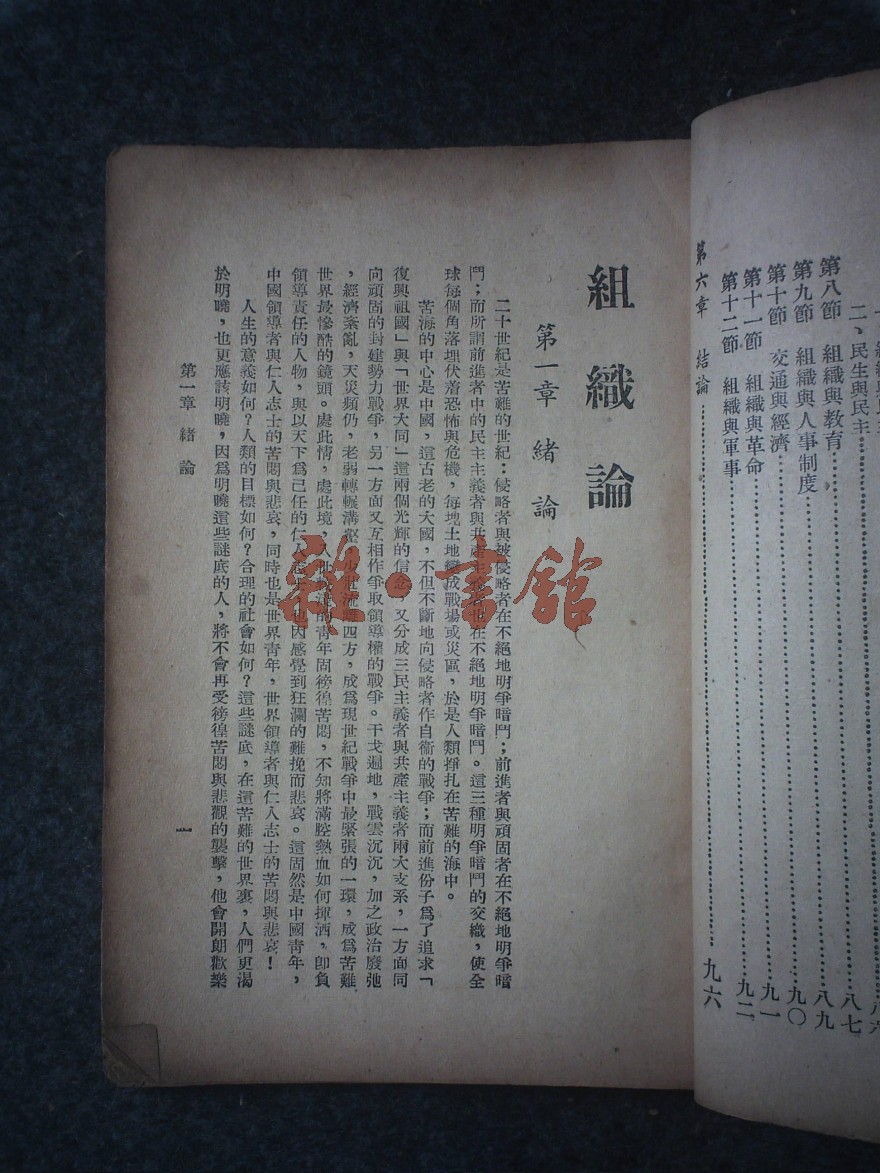 二、民生與民主
八七
第八節　組織與教育
八九
第九節　組織與人事制度
九〇
第十節　交通與經濟
九一
第十一節　組織與革命
九二
第十二節　組織與軍事
第六章　結論
九六
組織論
第一章　緒論
二十世紀是苦難的世紀：侵略者與被侵略者在不絕地明爭暗鬥；前進者與頑固者在不絕地明爭暗
鬥；而所謂前進者中的民主主義者與共產主義者也在不絕地明爭暗鬥。這三種明爭暗鬥的交織，使全
球每個角落埋伏着恐怖與危機，每塊土地變成戰場或災區，於是人類掙扎在苦難的海中。
苦海的中心是中國，這古老的大國，不但不斷地向侵略者作自衞的戰爭；而前進份子爲了追求「
復興祖國」與「世界大同」這兩個光輝的信念，又分成三民主義者與共產主義者兩大支系，一方面同
向頑固的封建勢力戰爭，另一方面又互相作爭取領導權的戰爭。干戈遍地，戰雲沉沉，加之政治廢弛
，經濟紊亂，天災頻仍，老弱轉輾溝壑，少壯流離四方，成爲現世紀戰爭中最緊張的一環，成爲苦難
世界最慘酷的鏡頭。處此情，處此境，入世的青年固徬徨苦悶，不知將滿腔熱血如何揮洒，卽負
領導責任的人物，與以天下爲己任的仁人志士，也因感覺到狂瀾的難挽而悲哀。這固然是中國青年，
中國領導者與仁人志士的苦悶與悲哀，同時也是世界青年，世界領導者與仁人志士的苦悶與悲哀！
人生的意義如何？人類的目標如何？合理的社會如何？這些謎底，在這苦難的世界裏，人們更渴
於明曉，也更應該明曉，因爲明曉這些謎底的人，將不會再受徬徨苦悶與悲觀的襲擊，他會開朗歡樂
第一章　緒論
一
雜·書館